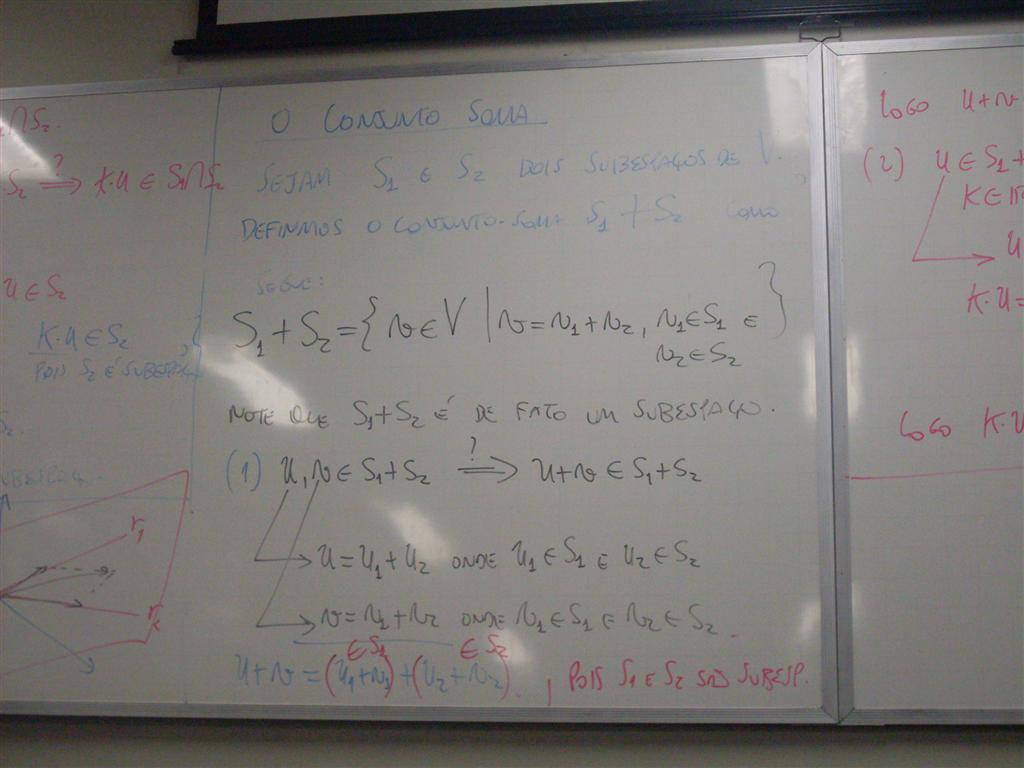 ∩S₂.
S₂ ?⟹ K·U ∈ S₁∩S₂
U ∈ S₂
K·U ∈ S₂
POIS S₂ É SUBESPAÇO
S₂.
r₁
O CONJUNTO SOMA
SEJAM S₁ E S₂ DOIS SUBESPAÇOS DE V.
DEFINIMOS O CONJUNTO-SOMA S₁+S₂ COMO
SEGUE:
S₁+S₂={v∈V | v=v₁+v₂, v₁∈S₁ E
v₂∈S₂}
NOTE QUE S₁+S₂ É DE FATO UM SUBESPAÇO.
(1) U,v∈S₁+S₂ ?⟹ U+v ∈ S₁+S₂
U=U₁+U₂ ONDE U₁∈S₁ E U₂∈S₂
v=v₁+v₂ ONDE v₁∈S₁ E v₂∈S₂.
∈S₁ ∈S₂
U+v=(U₁+v₁)+(U₂+v₂), POIS S₁ E S₂ SÃO SUBESP.
LOGO U+v
(2) U∈S₁+
K∈
U
K·U=
LOGO K·U